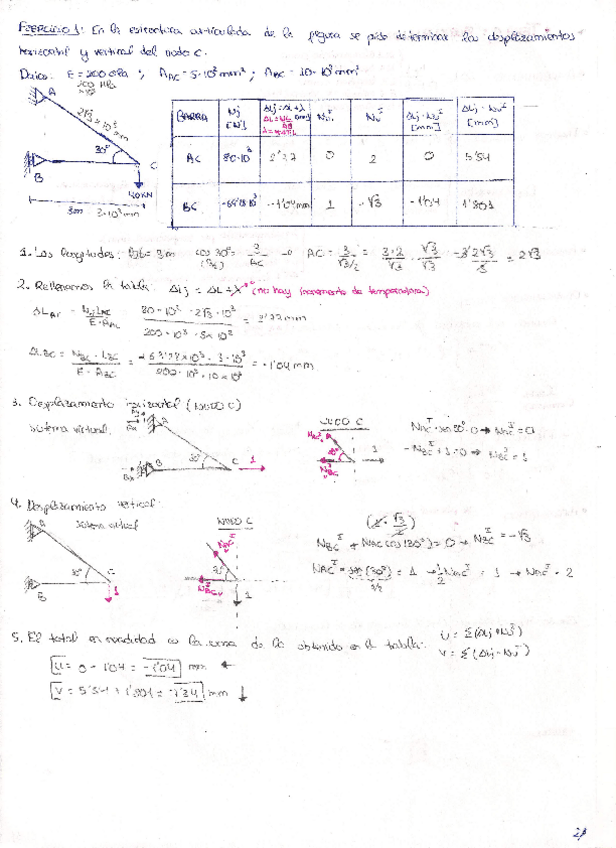 EJERCICIO 1: En la estructura articulada de la figura se pide determinar los desplazamientos
horizontal y vertical del nodo C.
Datos: E = 200 GPa ; A_AC = 5·10² mm² ; A_BC = 10·10² mm²
A
2√3 × 10³ mm
30°
C
B
40KN
3m 3·10³ mm
BARRA Nj [N] ΔLj = ΔL + λ [mm] Nu^I Nv^I ΔLj·Nu^I [mm] ΔLj·Nv^I [mm]
AC 80·10³ 2'77 0 2 0 5'54
BC -1'04mm 1 -√3 -1'04 1'801
1. Las longitudes: BC = 3m cos 30° = 3/AC → AC = 3/(√3/2) = 3·2/√3 · √3/√3 = 2√3
2. Rellenamos la tabla. ΔLj = ΔL + λ (no hay incremento de temperatura)
ΔL_AC = = 80·10³·2√3·10³ / =
ΔL_BC = N_BC·L_BC / E·A_BC = = -1'04 mm
3. Desplazamiento horizontal (NODO C)
sistema virtual.
A
B
30°
C
1
NODO C
N_AC^I
30°
N_BC^I
1
N_AC^I · sen30° = 0 → N_AC^I = 0
-N_BC^I + 1 = 0 → N_BC^I = 1
4. Desplazamiento vertical:
sistema virtual
A
B
30°
C
1
NODO C
30°
1
(2·√3/2)
N_BC^I + N_AC cos(30°) = 0 → N_BC^I = -√3
N_AC^I · sen(30°) = 1 → 1/2 N_AC^I = 1 → N_AC^I = 2
5. El total en realidad es la suma de lo obtenido en la tabla:
U = Σ(ΔLj·Nu^I)
V = Σ(ΔLj·Nv^I)
U = 0 - 1'04 = -1'04 mm ←
V = 5'54 + 1'801 = 7'34 mm ↓